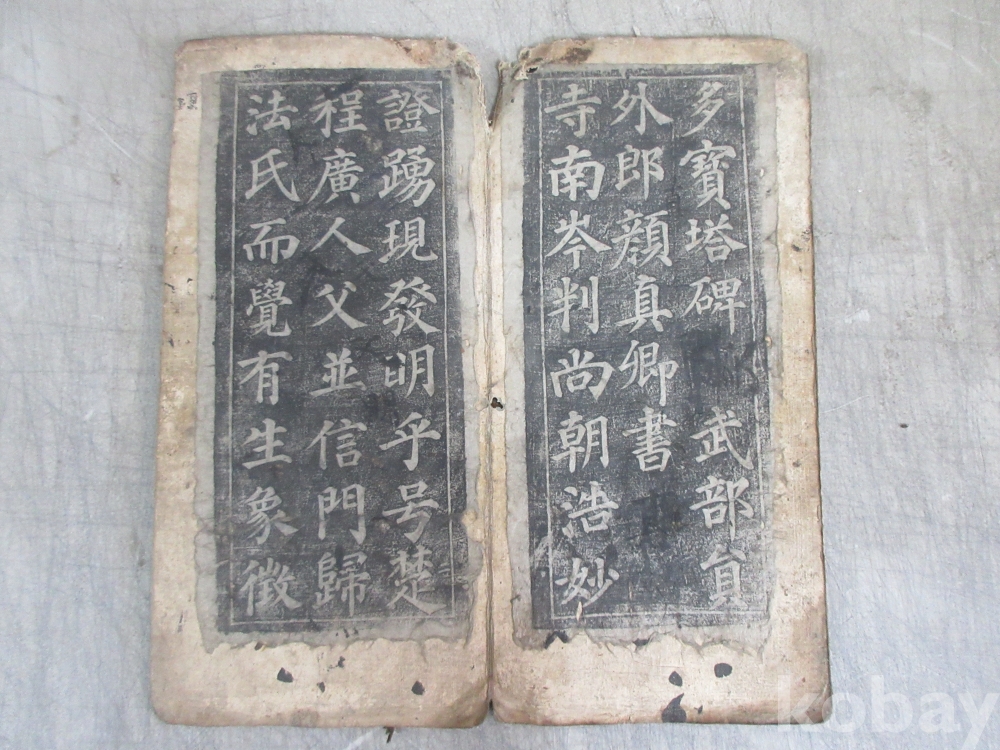 多寶塔碑 武部貟
外郎顔真卿書
寺南岑判尚朝浩妙
證踴現發明乎号楚
程廣人父並信門歸
法氏而覺有生象徵
kobay